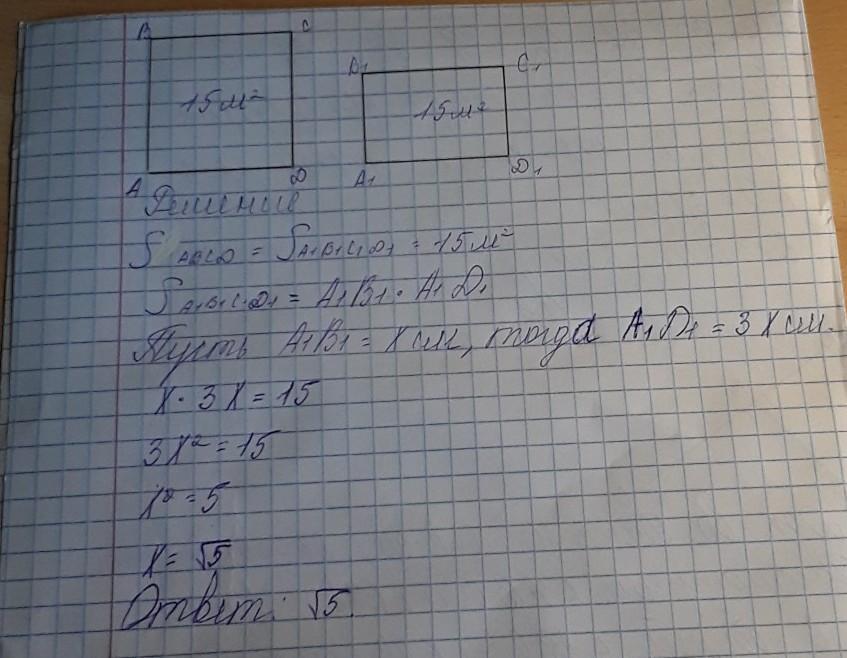 B C
15 м²
A D
B₁ C₁
15 м²
A₁ D₁
Решение
S ABCD = S A₁B₁C₁D₁ = 15 м²
S A₁B₁C₁D₁ = A₁B₁ · A₁D₁
Пусть A₁B₁ = x см, тогда A₁D₁ = 3x см.
x · 3x = 15
3x² = 15
x² = 5
x = √5
Ответ: √5.